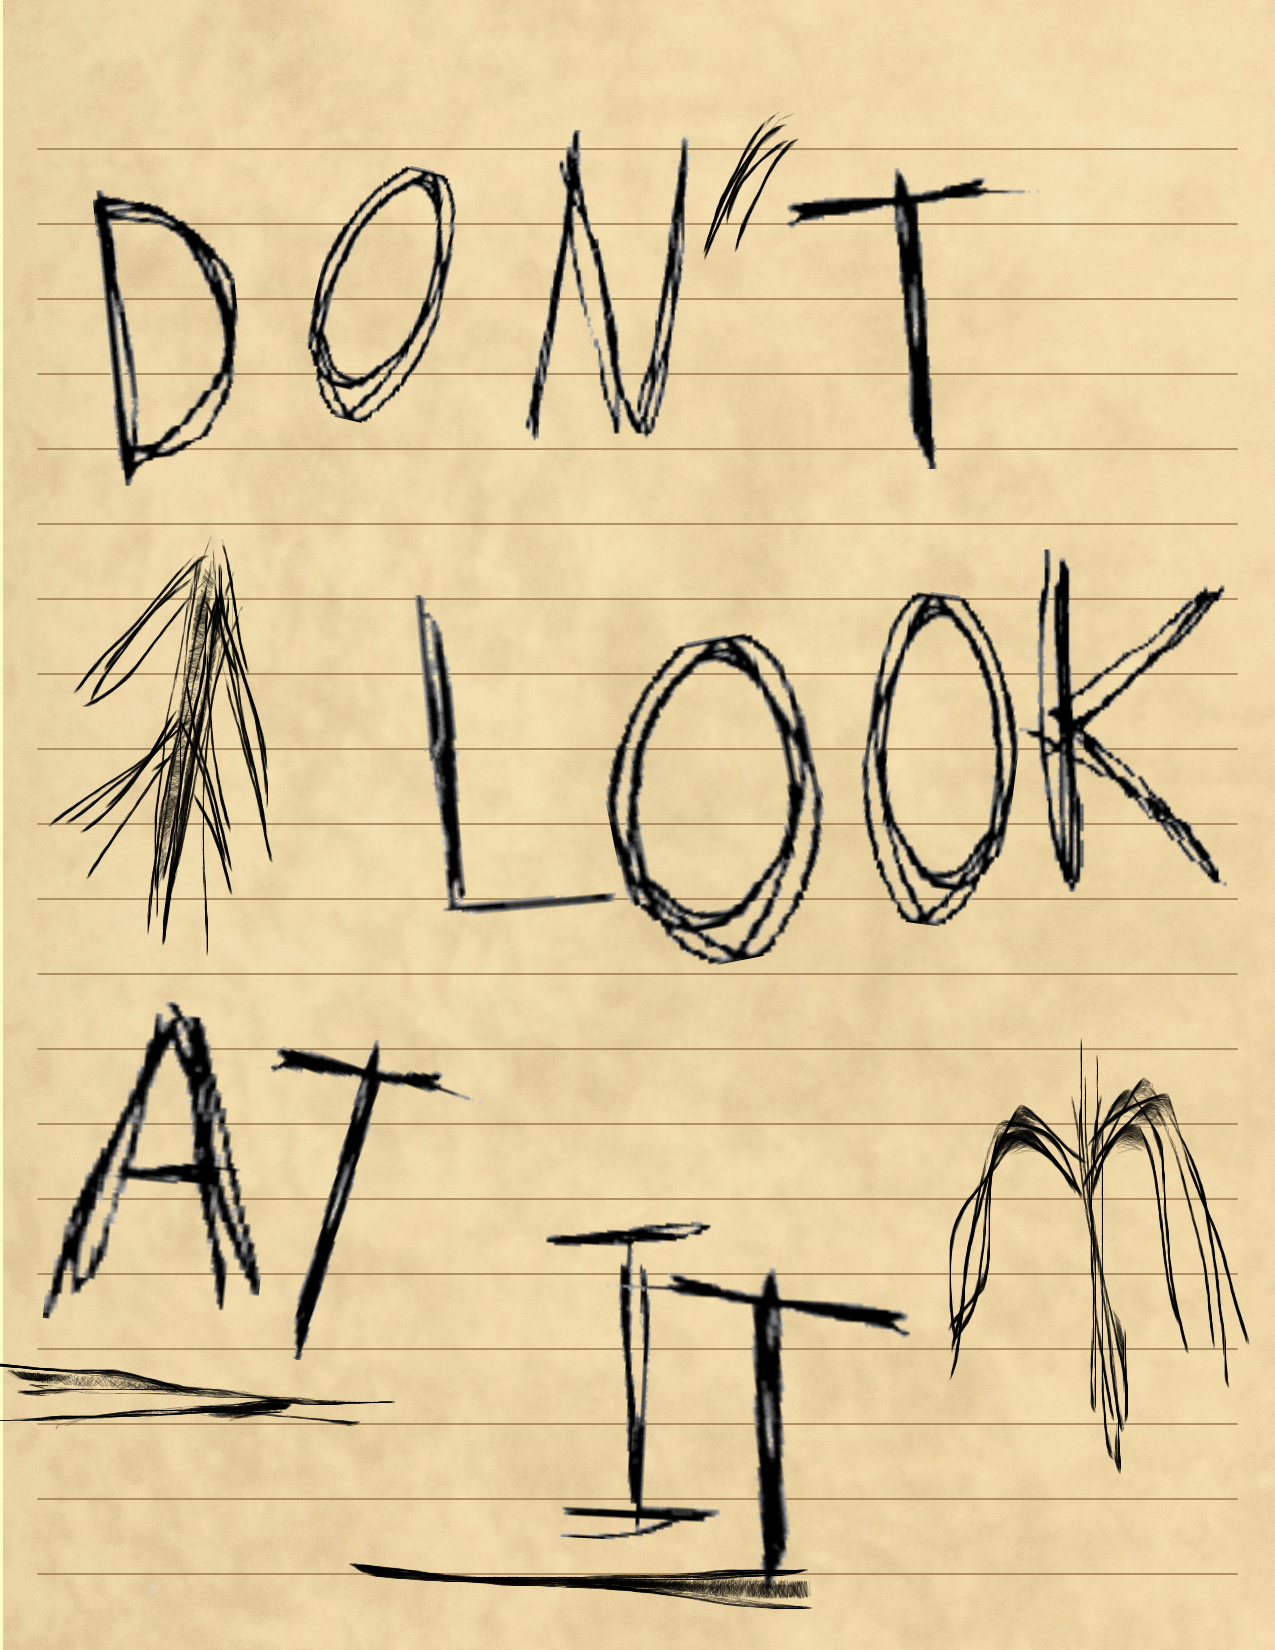 DON'T
LOOK
AT
IT